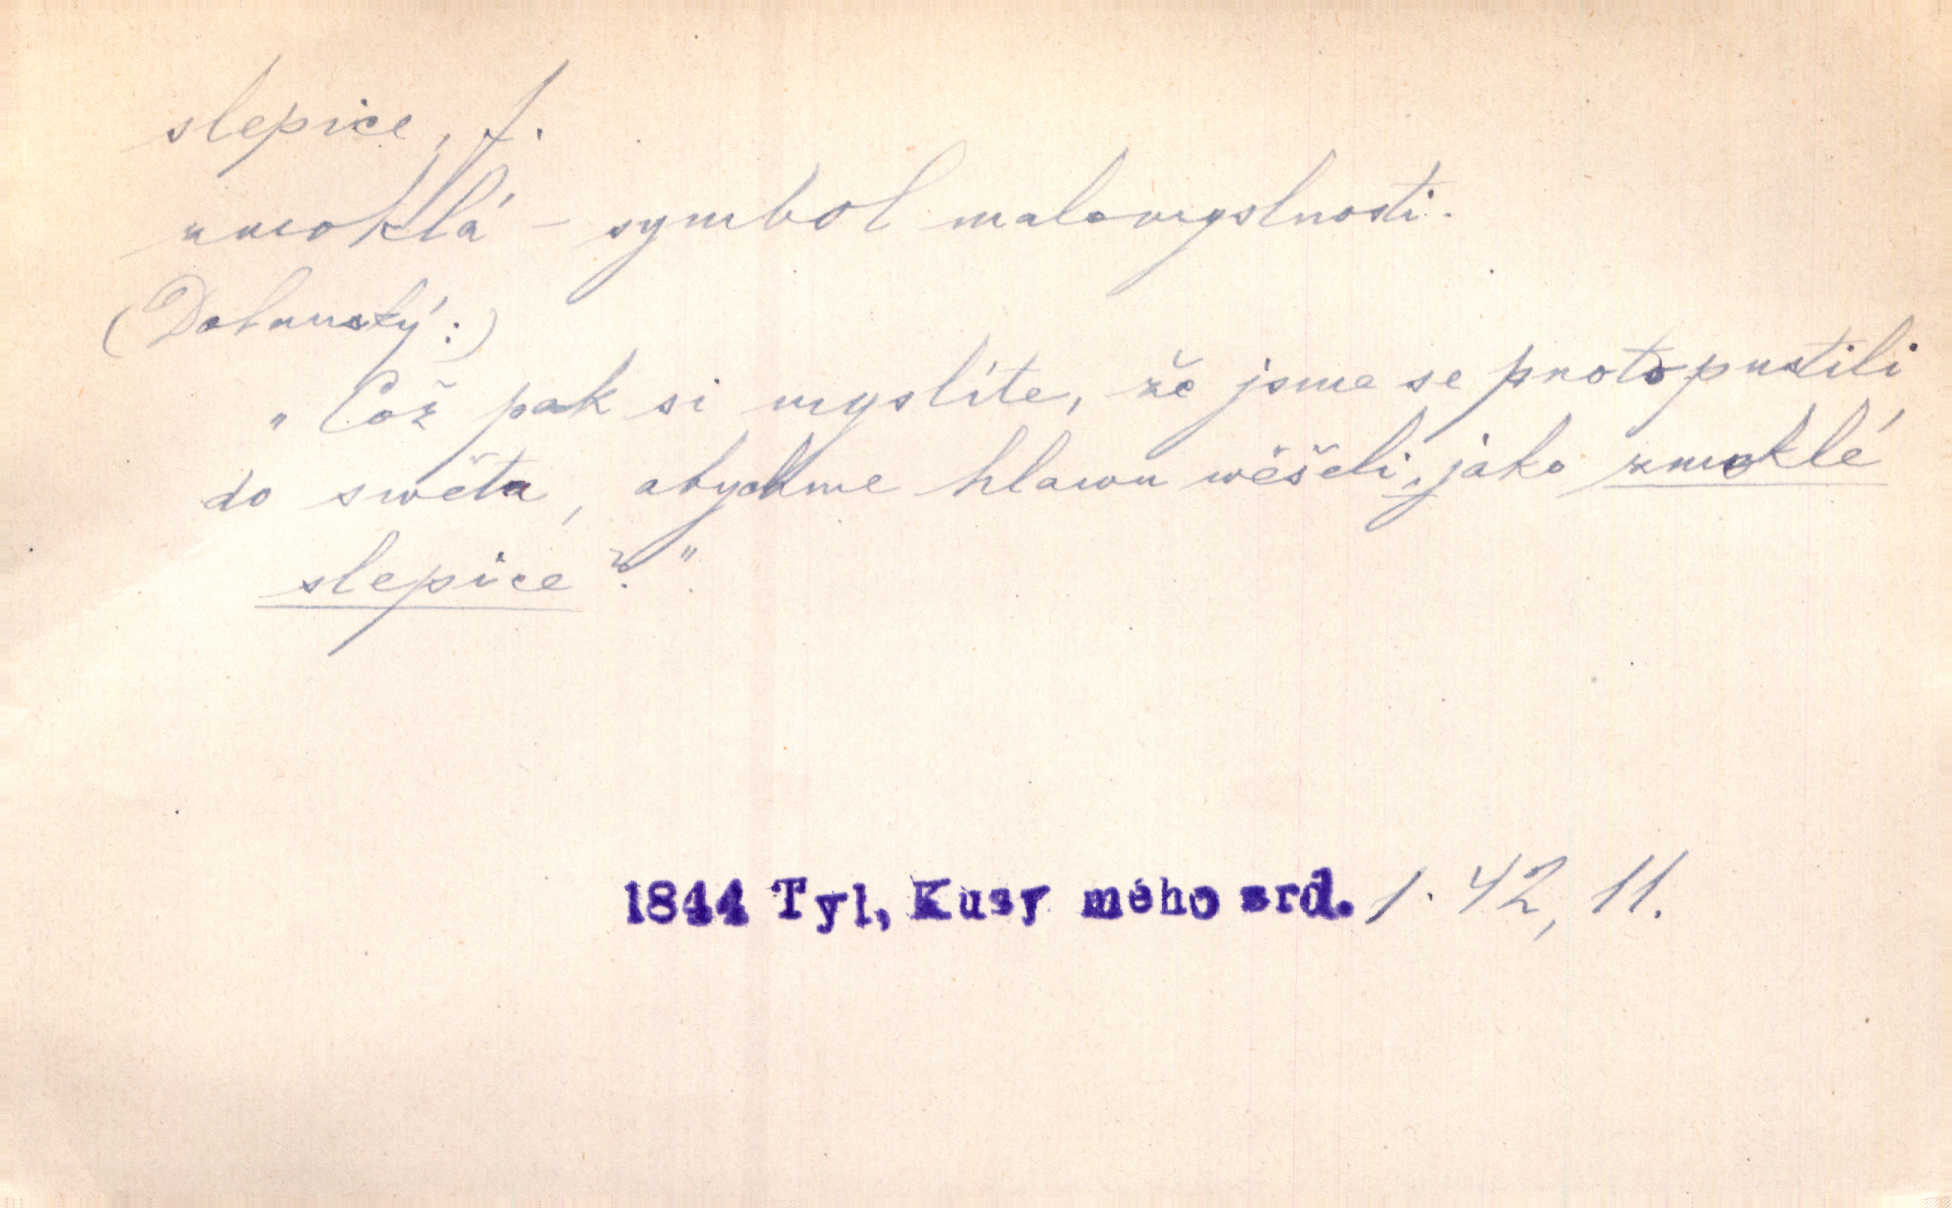 slepice, f.
zmoklá – symbol malomyslnosti.
(Dolanský:)
„Což pak si myslíte, že jsme se proto pustili
do swěta, abychme hlawu wěšeli, jako zmoklé
slepice?"
1844 Tyl, Kusy mého srd. 1. 42, 11.